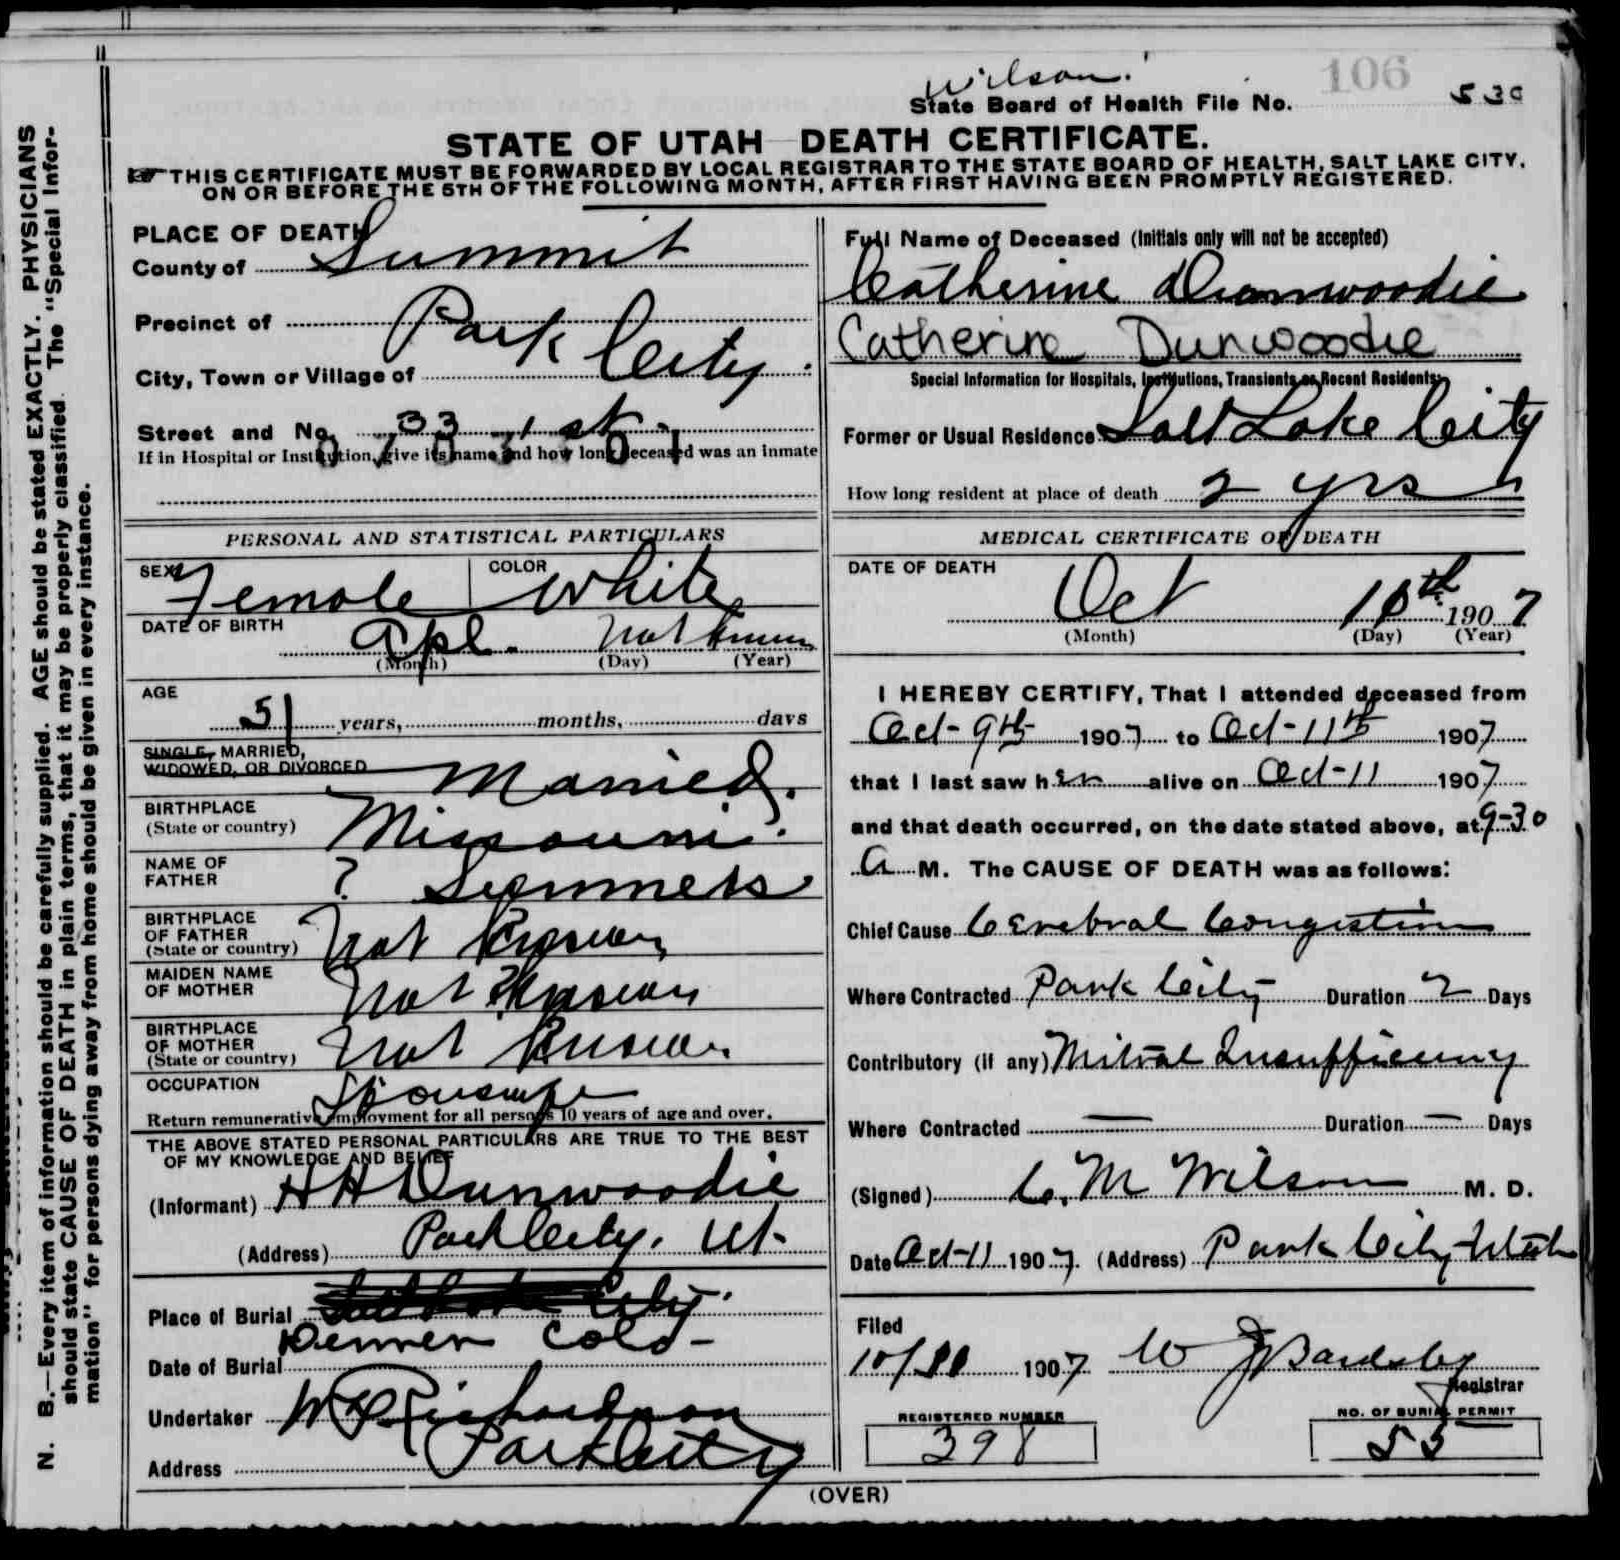 Wilson.
106
State Board of Health File No. 530
STATE OF UTAH DEATH CERTIFICATE.
THIS CERTIFICATE MUST BE FORWARDED BY LOCAL REGISTRAR TO THE STATE BOARD OF HEALTH, SALT LAKE CITY,
ON OR BEFORE THE 5TH OF THE FOLLOWING MONTH, AFTER FIRST HAVING BEEN PROMPTLY REGISTERED.
PLACE OF DEATH
County of Summit
Precinct of Park City
City, Town or Village of
Street and No. 33 1 st.
If in Hospital or Institution, give its name and how long deceased was an inmate
Full Name of Deceased (Initials only will not be accepted)
Catherine Dunwoodie
Catherine Dunwoodie
Special Information for Hospitals, Institutions, Transients or Recent Residents:
Former or Usual Residence Salt Lake City
How long resident at place of death 2 yrs
PERSONAL AND STATISTICAL PARTICULARS
SEX Female COLOR White
DATE OF BIRTH Apl. Not known
(Month) (Day) (Year)
AGE
51 years, months, days
SINGLE, MARRIED,
WIDOWED, OR DIVORCED Married.
BIRTHPLACE
(State or country) Missouri.
NAME OF
FATHER ?
BIRTHPLACE
OF FATHER
(State or country) Not Known
MAIDEN NAME
OF MOTHER Not Known
BIRTHPLACE
OF MOTHER
(State or country) Not Known
OCCUPATION Housewife
Return remunerative employment for all persons 10 years of age and over.
THE ABOVE STATED PERSONAL PARTICULARS ARE TRUE TO THE BEST
OF MY KNOWLEDGE AND BELIEF
(Informant) H H Dunwoodie
(Address) Park City, Ut.
Place of Burial Salt Lake City.
Denver Colo-
Date of Burial
Undertaker Richardson
Address Park City
MEDICAL CERTIFICATE OF DEATH
DATE OF DEATH
Oct 11th 1907
(Month) (Day) (Year)
I HEREBY CERTIFY, That I attended deceased from
Oct-9th 1907 to Oct-11th 1907
that I last saw her alive on Oct-11 1907
and that death occurred, on the date stated above, at 9-30
A M. The CAUSE OF DEATH was as follows:
Chief Cause Cerebral Congestion
Where Contracted Park City Duration 2 Days
Contributory (if any) Mitral Insufficiency
Where Contracted — Duration — Days
(Signed) C. M Wilson M. D.
Date Oct-11 1907. (Address) Park City Utah
Filed
10/11 1907 W J Bardsley
Registrar
REGISTERED NUMBER
398
NO. OF BURIAL PERMIT
55
(OVER)
N. B.—Every item of information should be carefully supplied. AGE should be stated EXACTLY. PHYSICIANS
should state CAUSE OF DEATH in plain terms, that it may be properly classified. The "Special Infor-
mation" for persons dying away from home should be given in every instance.